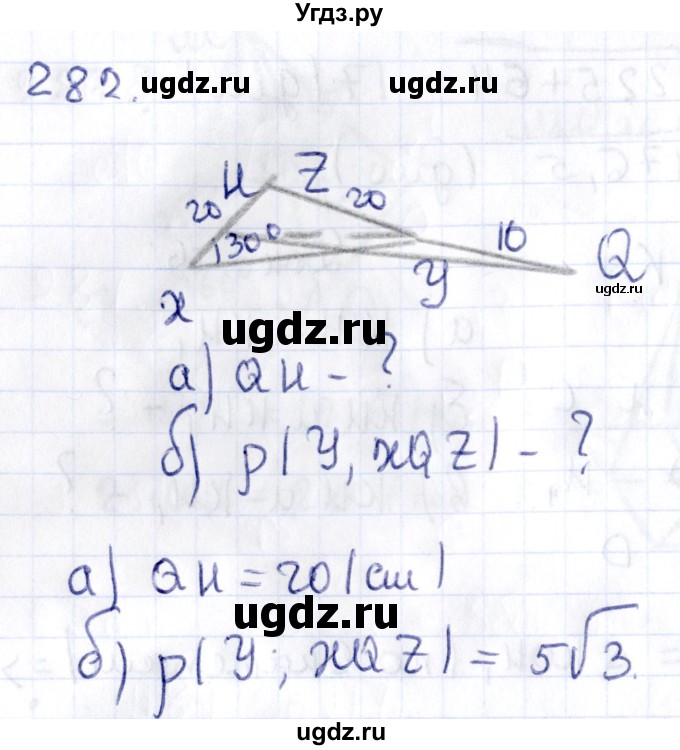 Угдз.ру
282.
ugdz.ru ugdz.ru
H Z
20 20
130° 10
Q
ugdz.ru
x y
ugdz.ru
а) QH - ?
б) р(У, xQZ) - ?
ugdz.ru
а) QH = 20 (см)
ugdz.ru
б) р(У; xQZ) = 5√3.
ugdz.ru
ugdz.ru